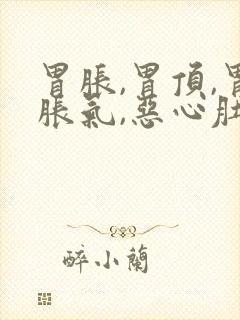 胃脹,胃頂,胃
脹氣,惡心肚
醉小蘭